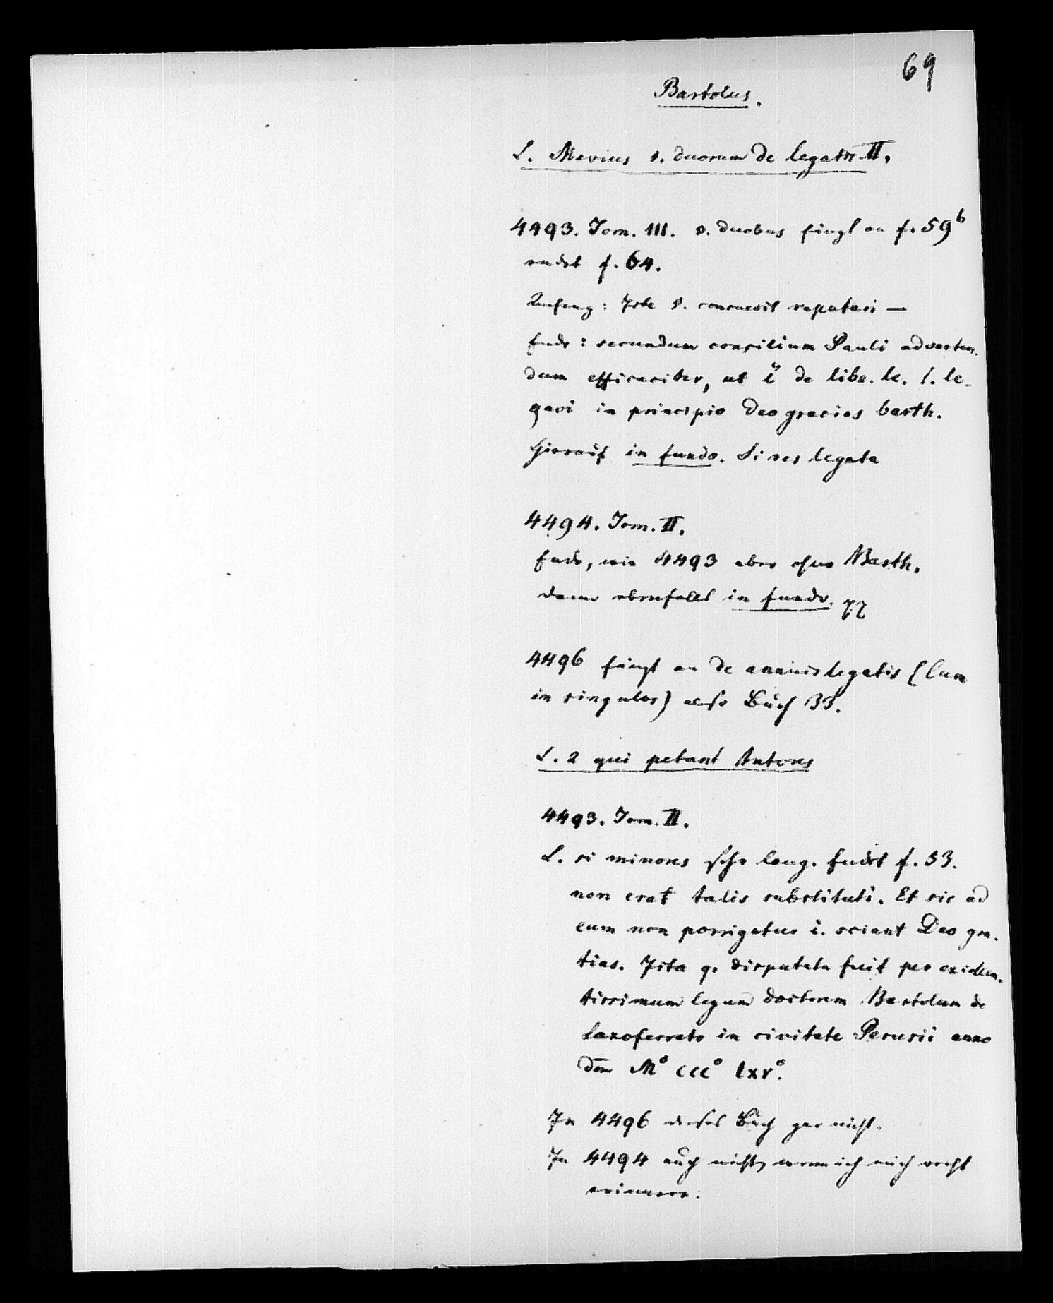 69
Bartolus.
L. Mevius §. duorum de legatis II.
4493. Tom. III. §. duobus fängt an f. 59b
endet f. 64.
Anfang: Iste §. consuevit reputari —
Ende: secundum consilium Pauli adverten
dum efficaciter, ut i de libe. le. l. le
gavi in principio Deo gracias barth.
Hierauf in fundo. Si res legata
4494. Tom. II.
Ende, wie 4493 aber ohne Barth.
dann ebenfalls in fundo.
4496 fängt an de annuis legatis (Cum
in singulos) also Buch 33.
L. 2 qui petant tutores
4493. Tom. II.
L. si minores sehr lang. Endet f. 53.
non erat talis substituti. Et sic ad
eum non porrigetur i. sciant Deo gra
tias. Ista q. disputata fuit per exiden
tissimum legum doctorem Bartolum de
Saxoferrato in civitate Perusii anno
dom M° CCC° lxv°.
In 4496 dieses Buch gar nicht.
In 4494 auch nicht, wenn ich mich recht
erinnere.